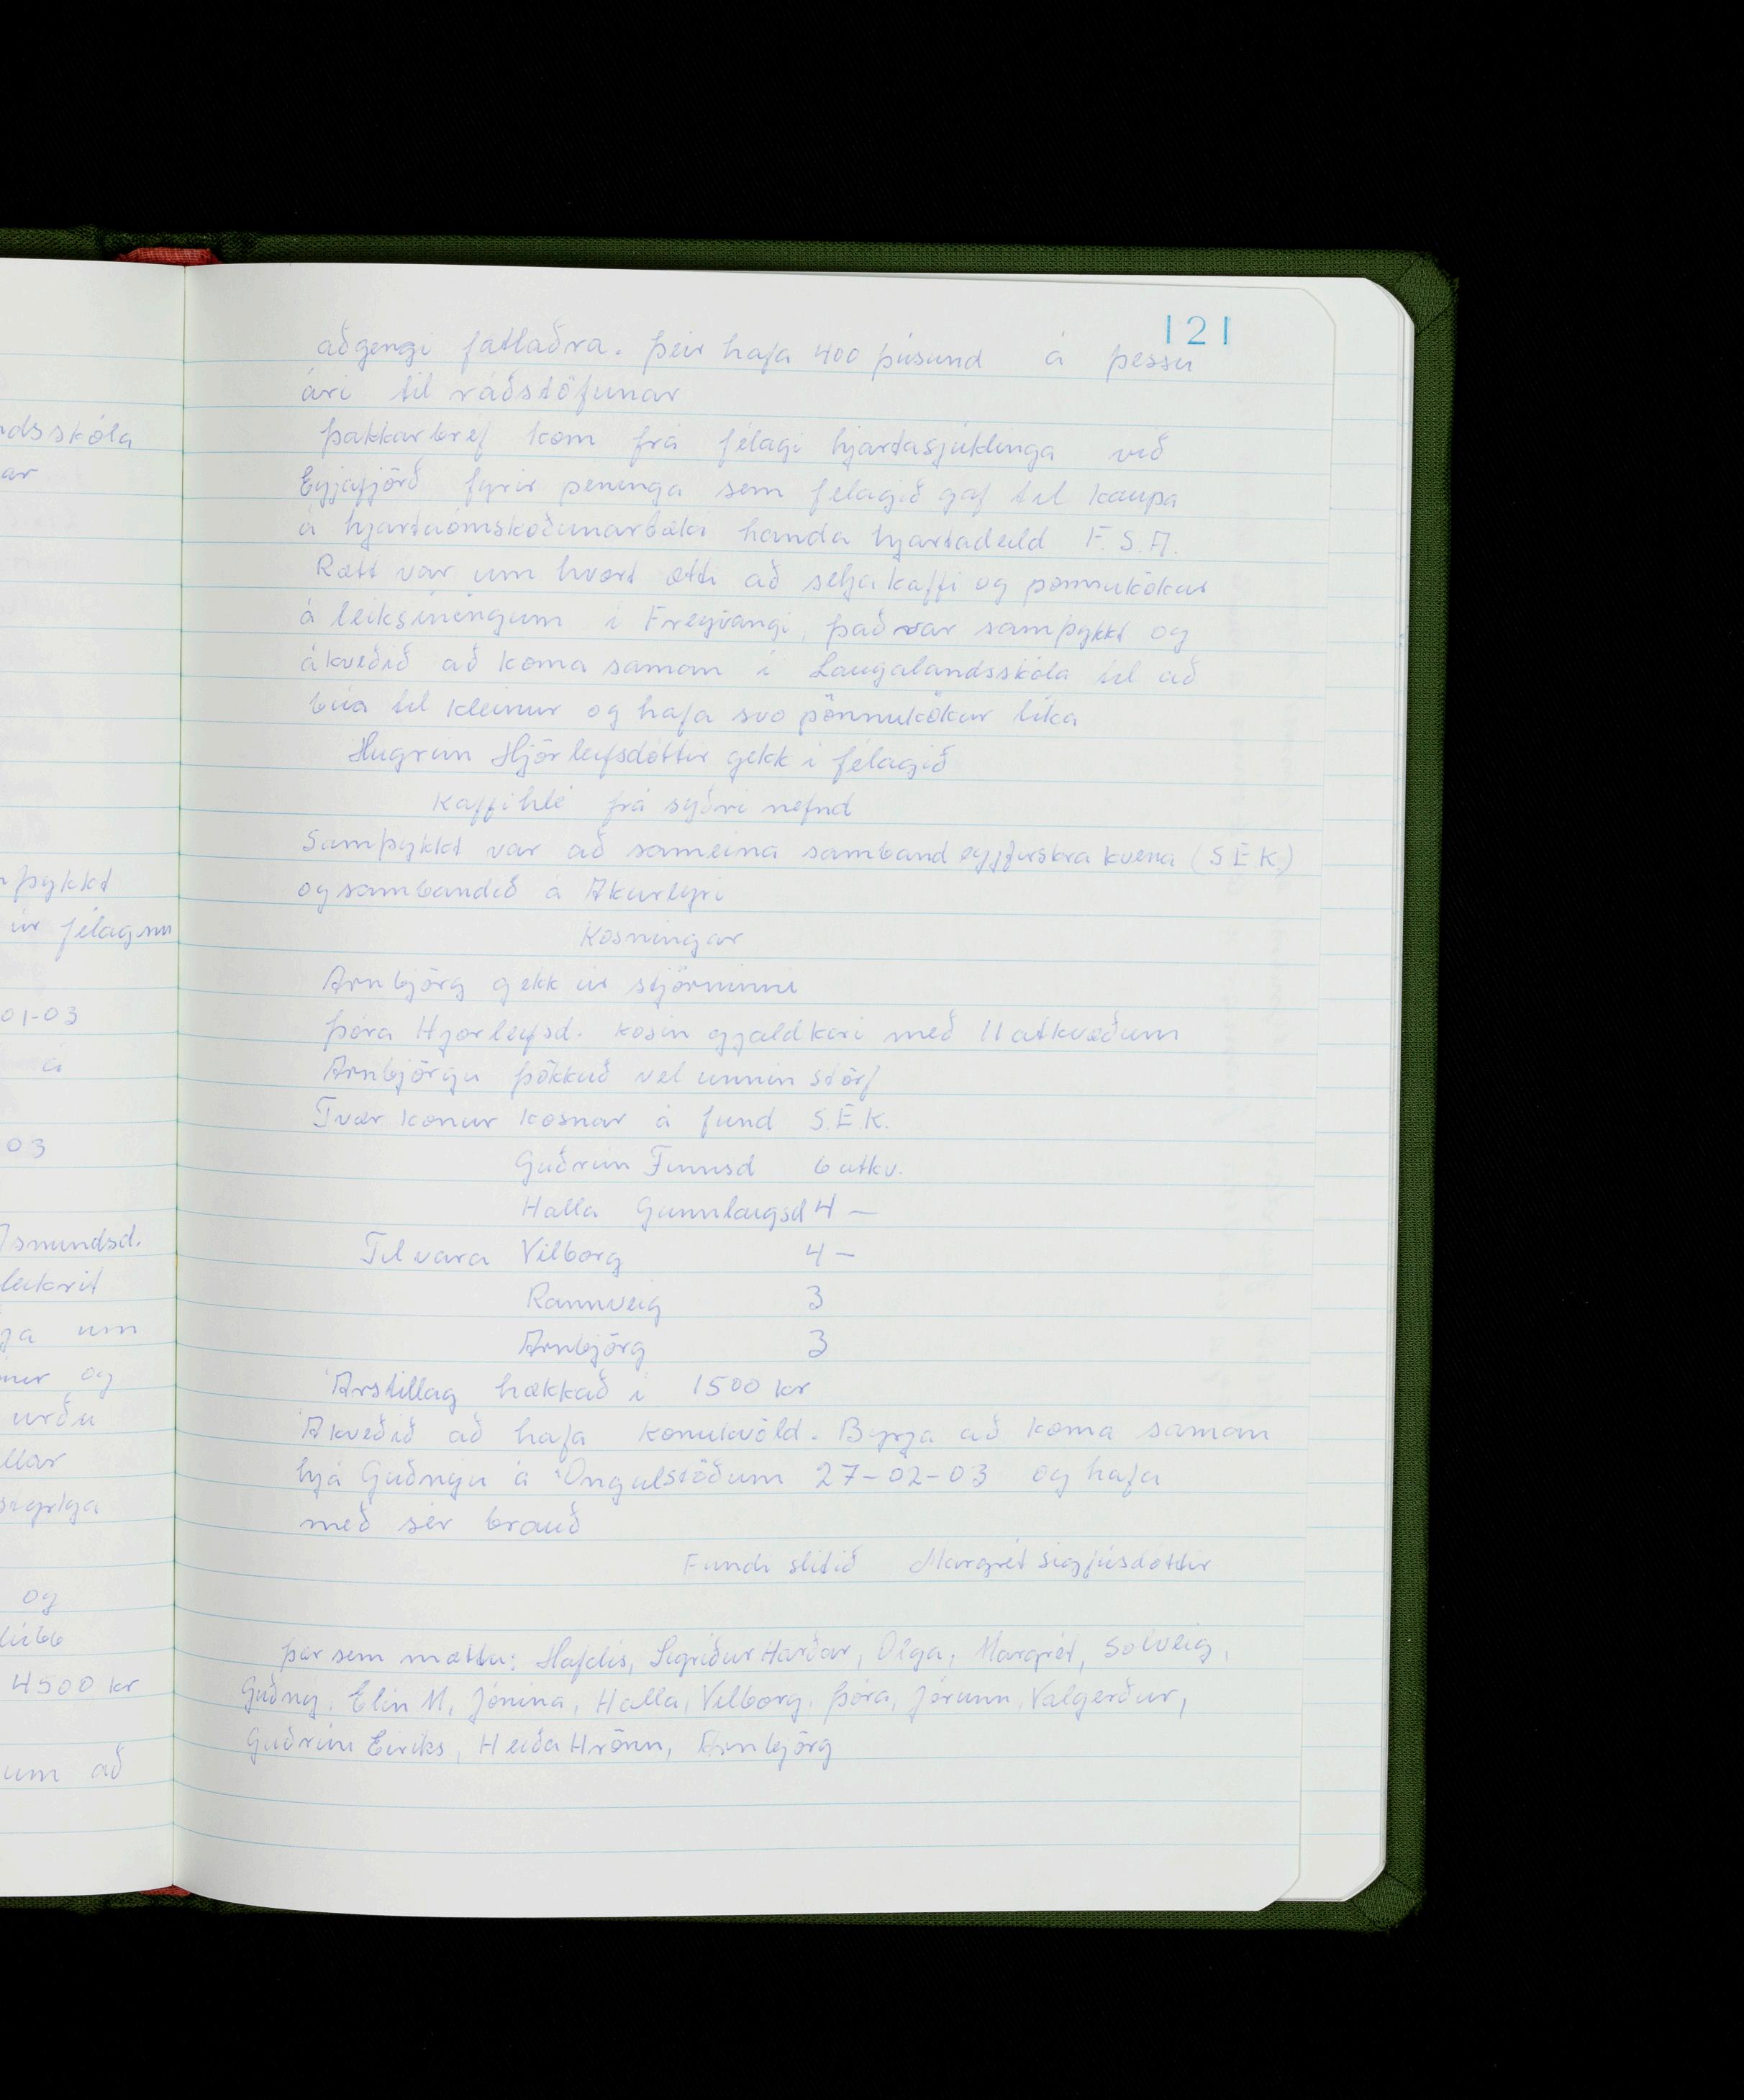 121
aðgengi fatlaðra. Þeir hafa 400 þúsund á þessu
ári til ráðstöfunar
Þakkarbréf kom frá félagi hjartasjúklinga við
Eyjafjörð fyrir peninga sem félagið gaf til kaupa
á hjartaómskoðunartæki handa hjartadeild F.S.A.
Rætt var um hvort ætti að selja kaffi og pönnukökur
á leiksíningum í Freyvangi, það var samþykkt og
ákveðið að koma saman í Laugalandsskóla til að
búa til kleinur og hafa svo pönnukökur líka
Hugrún Hjörleifsdóttir gekk í félagið
Kaffihlé frá syðri nefnd
Samþykkt var að sameina samband eyfirskra kvena (S E K)
og sambandið á Akureyri
Kosningar
Arnbjörg gekk úr stjórninni
Þóra Hjörleifsd. kosin gjaldkeri með 11 atkvæðum
Arnbjörgu þökkuð vel unnin störf
Tvær konur kosnar á fund S.E.K.
Guðrún Finnsd 6 atkv.
Halla Gunnlaugsd 4 —
Til vara Vilborg 4 —
Rannveig 3
Arnbjörg 3
Árstillag hækkað í 1500 kr
Ákveðið að hafa konukvöld. Byrja að koma saman
hjá Guðnýu á Öngulstöðum 27-02-03 og hafa
með sér brauð
Fundi slitið Margrét Sigfúsdóttir
Þær sem mættu: Hafdís, Sigríður Harðar, Olga, Margrét, Sólveig,
Guðný, Elín M, Jónína, Halla, Vilborg, Þóra, Jórunn, Valgerður,
Guðrún Eiríks, Heiða Hrönn, Arnbjörg
ndsskóla
ar
þykkt
úr félaginu
01-03
á
03
Ásmundsd.
leikrit
um
og
urðu
llar
og
4500 kr
um að